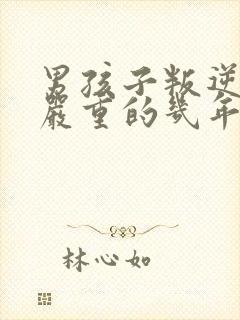 男孩子叛逆
嚴重的幾年
林心如